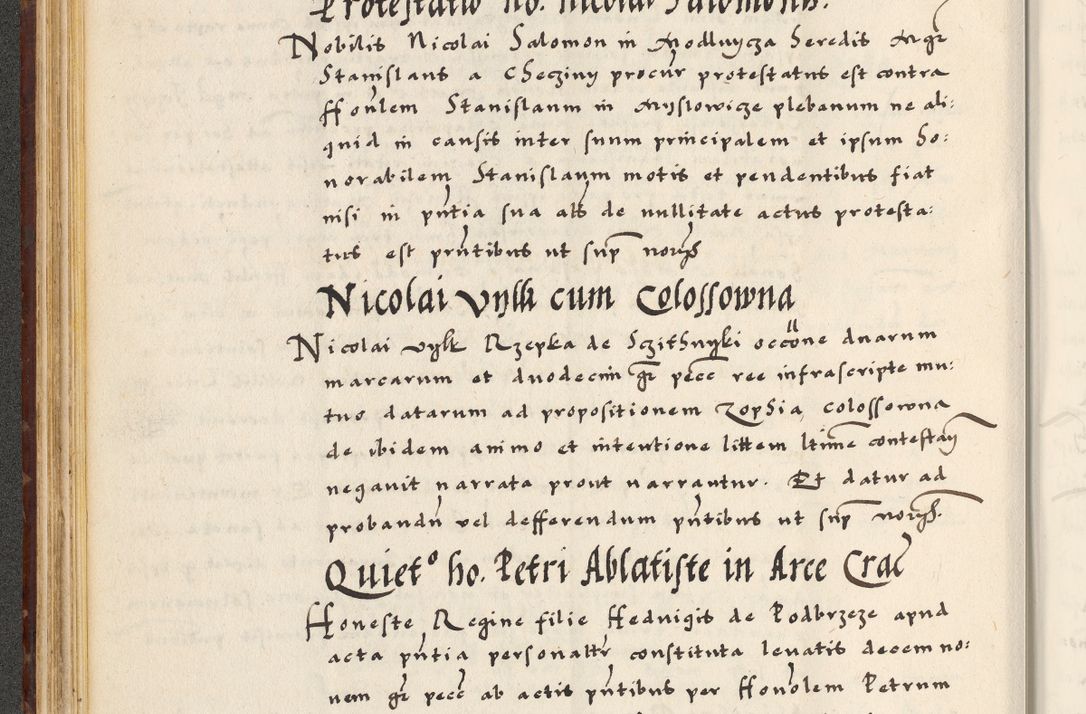 Protestatio ho. Nicolai Salomonis.
Nobilis Nicolai Salomon in Modlnycza heredis Mgr
Stanislaus a Checziny procur protestatus est contra
Honlem Stanislaum in Myslowicze plebanum ne ali:
quid in causis inter suum principalem et ipsum ho:
norabilem Stanislaum motis et pendentibus fiat
nisi in pntia sua als de nullitate actus protesta:
tus est prntibus ut sup
Nicolai Vylk cum Colossowna
Nicolai Vylk Rzepka de occone duarum
marcarum et duodecim gr pecc ree infrascripte mu:
tuo datarum ad propositionem Zophia Colossowna
de ibidem animo et intentione littem ltime contestan
negavit narrata prout narrantur. Et datur ad
probandu vel defferendum pntibus ut sup
Quieto ho. Petri Ablatiste in Arce Crac
Honeste Regine filie Hedvigis de Podbrzeze apud
acta pntia personaltr constituta levatis decem no:
vem gr pecc ab actis pntibus per Honolem Petrum